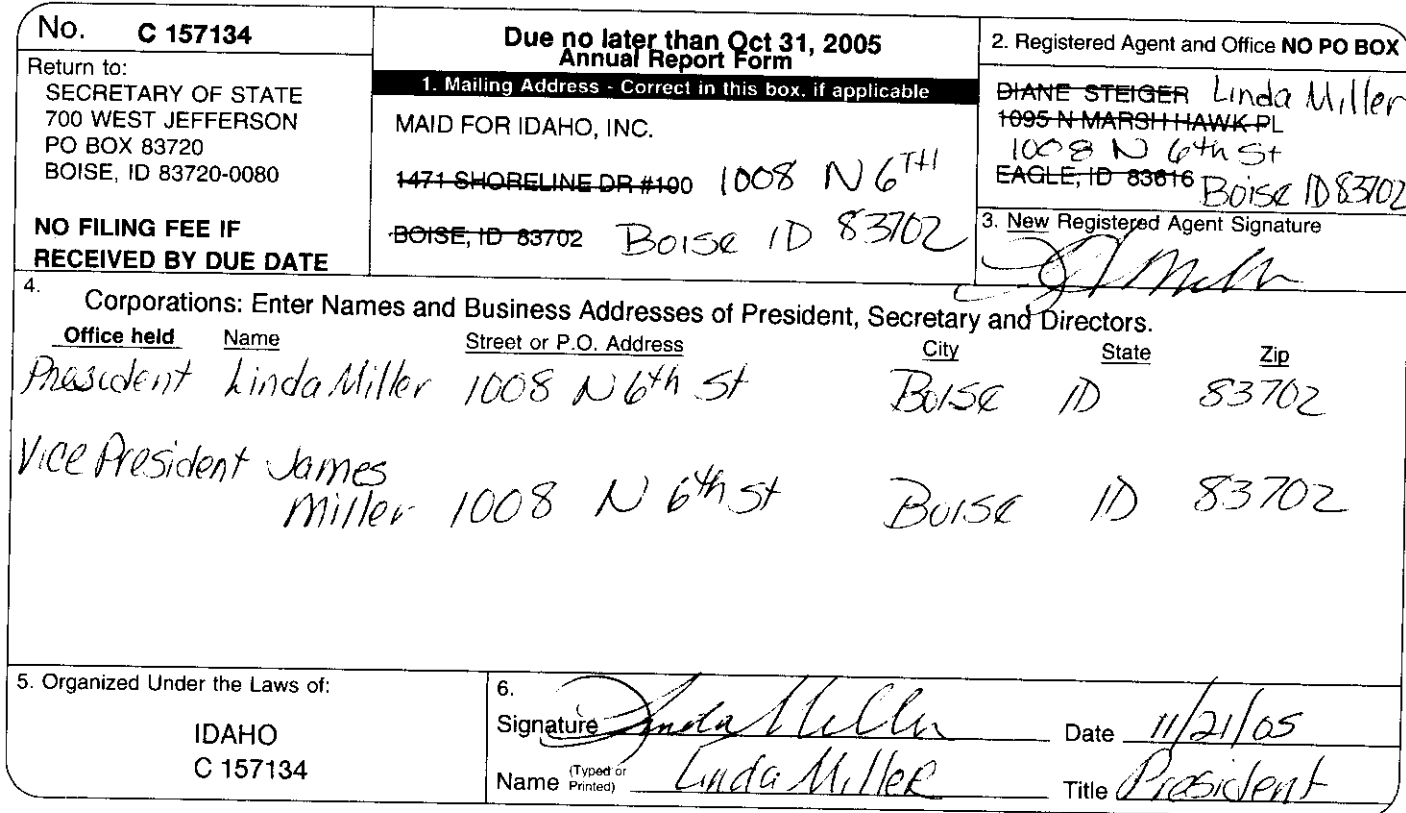 No. C 157134
Return to:
SECRETARY OF STATE
700 WEST JEFFERSON
PO BOX 83720
BOISE, ID 83720-0080
NO FILING FEE IF
RECEIVED BY DUE DATE
Due no later than Oct 31, 2005
Annual Report Form
1. Mailing Address - Correct in this box, if applicable
MAID FOR IDAHO, INC.
1471 SHORELINE DR #100 1008 N 6TH
BOISE, ID 83702 Boise ID 83702
2. Registered Agent and Office NO PO BOX
DIANE STEIGER Linda Miller
1095 N MARSH HAWK PL
1008 N 6th St
EAGLE, ID 83616 Boise ID 83702
3. New Registered Agent Signature
4.
Corporations: Enter Names and Business Addresses of President, Secretary and Directors.
Office held Name Street or P.O. Address City State Zip
President Linda Miller 1008 N 6th St Boise ID 83702
Vice President James
Miller 1008 N 6th St Boise ID 83702
5. Organized Under the Laws of:
IDAHO
C 157134
6.
Signature Linda Miller Date 11/21/05
Name (Typed or Printed) Linda Miller Title President